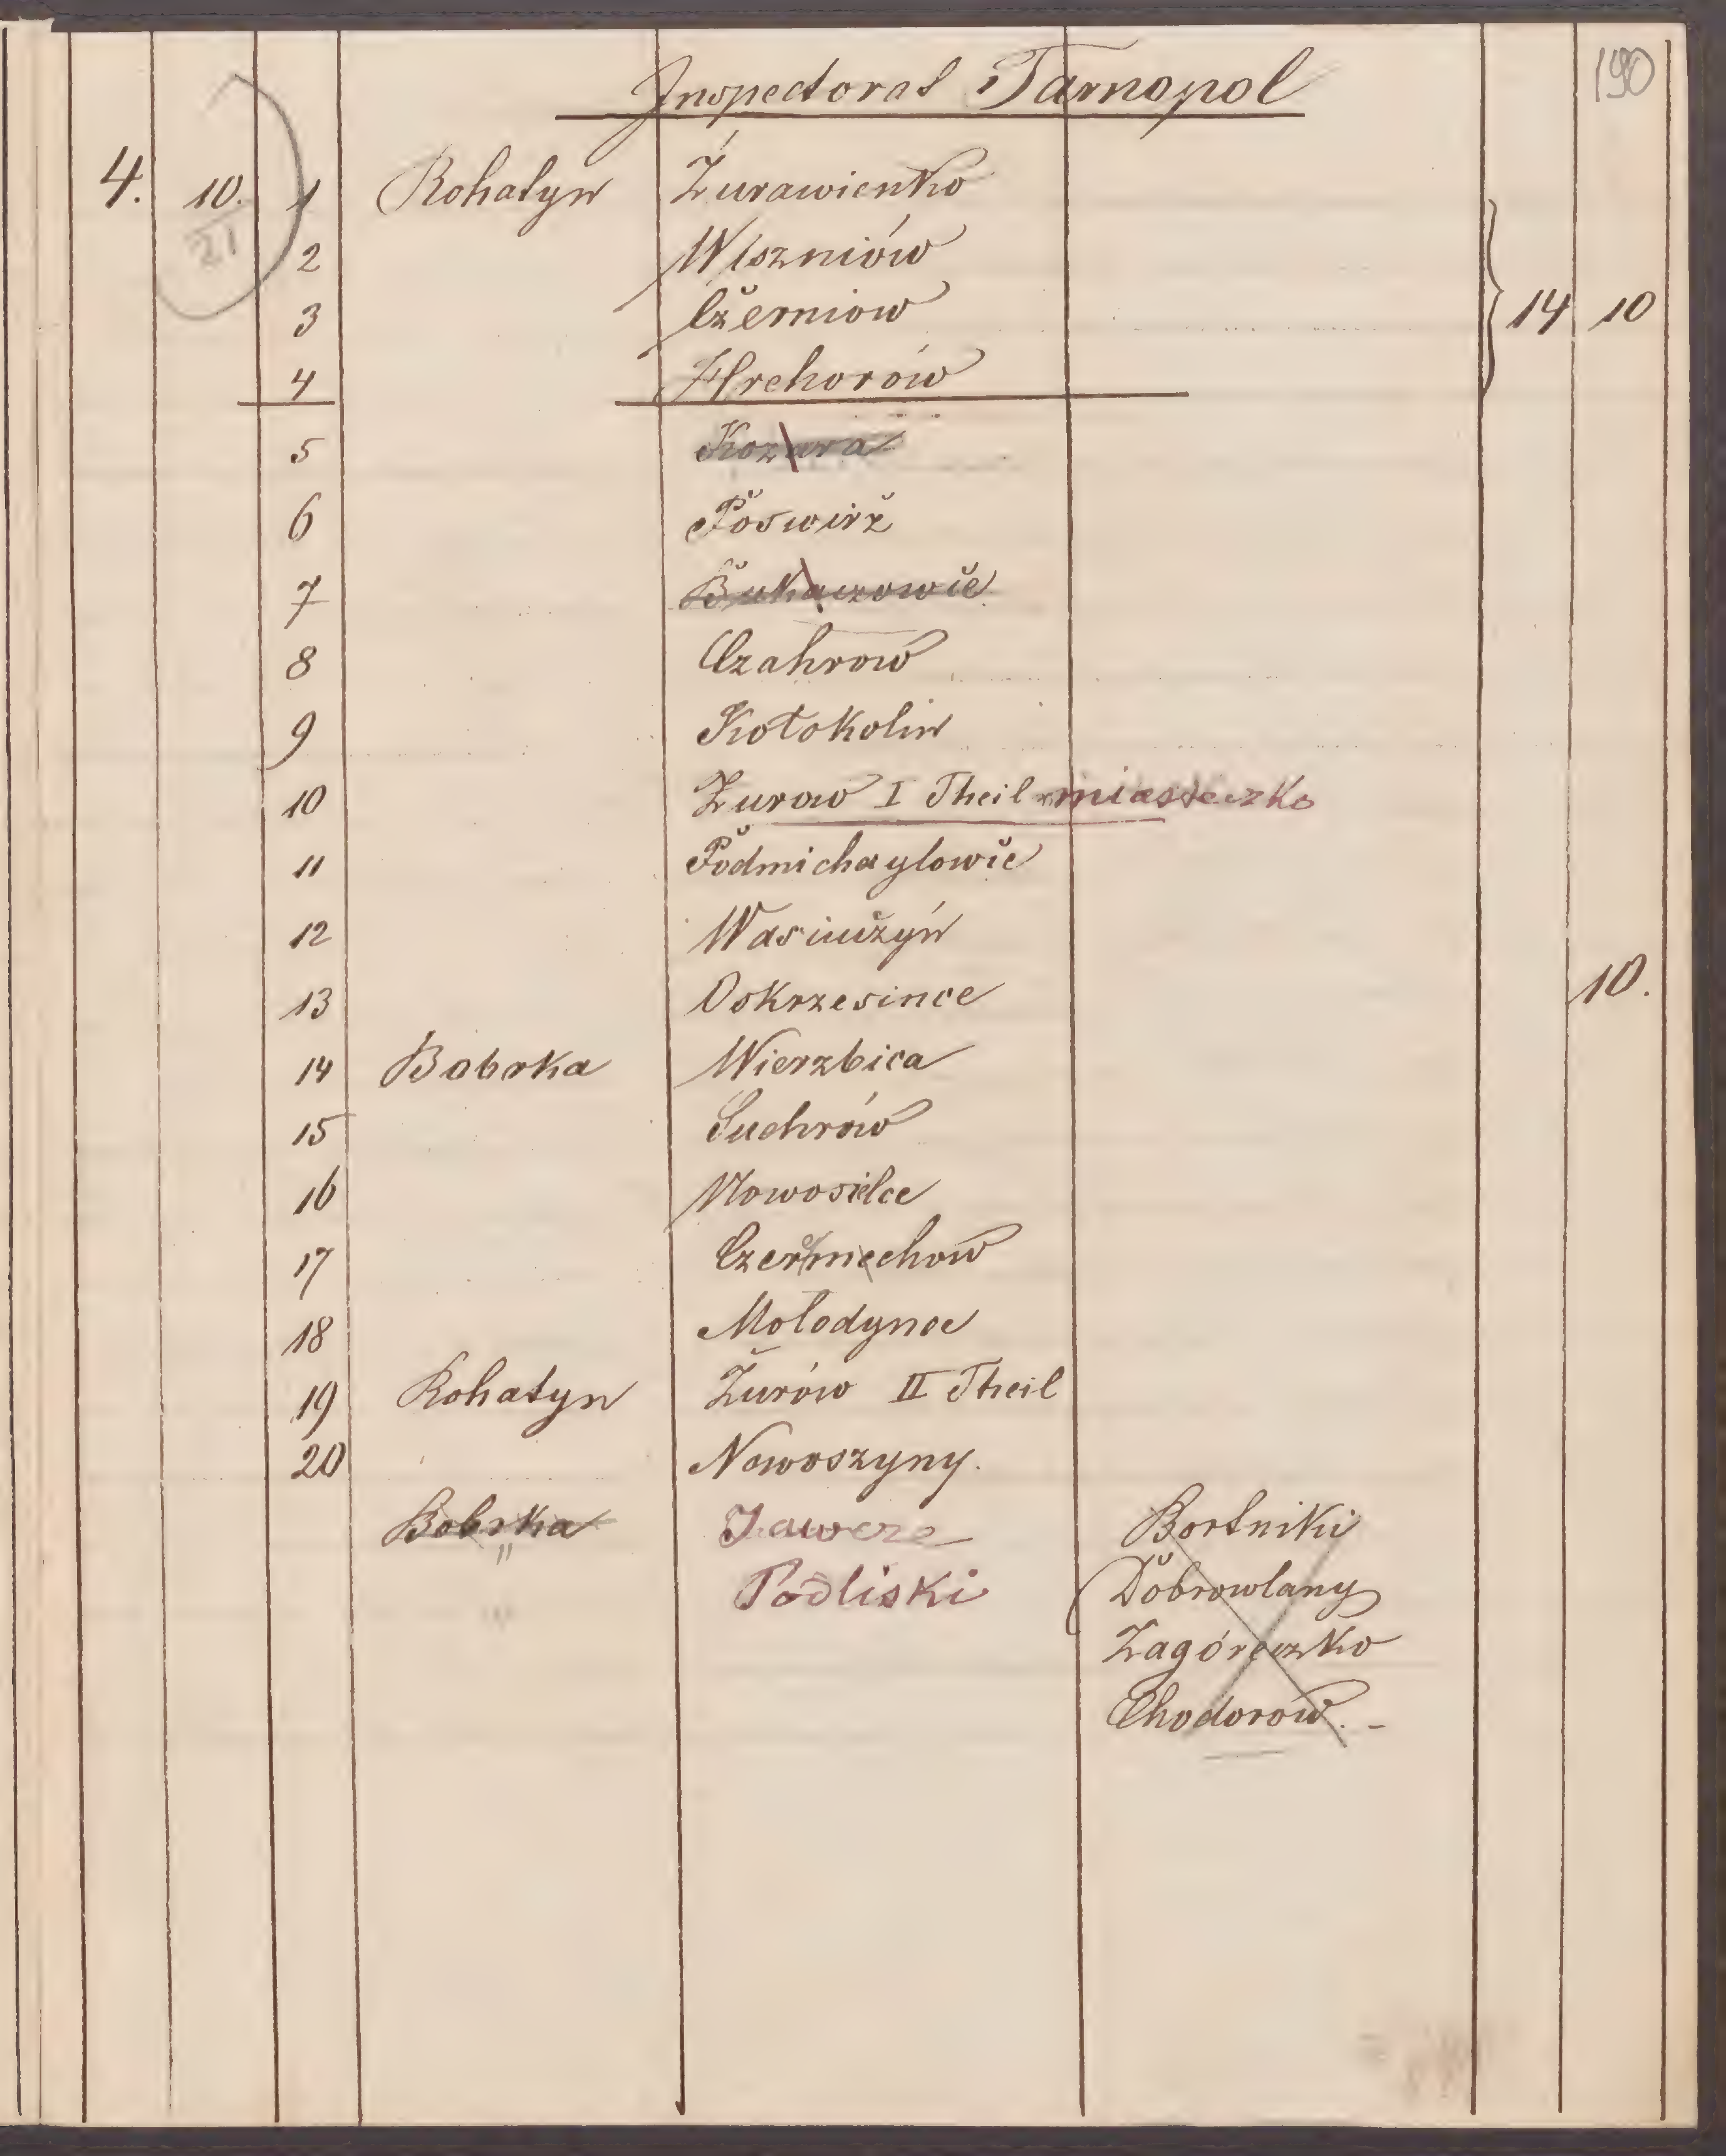 190
Inspectorat Tarnopol
4. 10. 1 Rohatyn Żurawienko
21
2 Wiszniów
3 Czerniow 14 10
4 Hrehorów
5 Kozara
6 Poswirz
7 Bukaczowie
8 Czahrow
9 Kołokolin
10 Zurow I Theil miasteczko
11 Podmichaylowie
12 Wasiuczyn
13 Oskrzesince 10.
14 Bobrka Wierzbica
15 Suchrów
16 Nowosielce
17 Czermechow
18 Mołodynce
19 Rohatyn Żurów II Theil
20 Nowoszyny.
Bobrka Zawcze Bortniki
" Podliski Dobrowlany
Zagóreczko
Chodorow. -